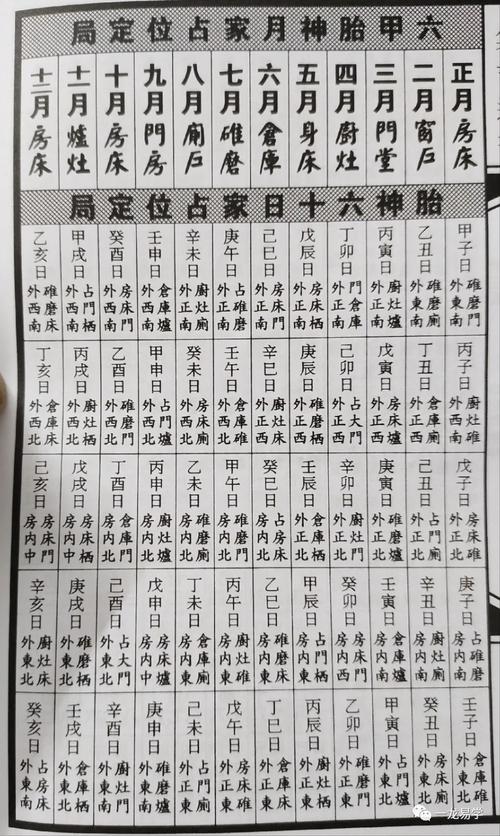 六甲胎神月家占位定局
正月房床
二月窗戶
三月門堂
四月廚灶
五月身床
六月倉庫
七月碓磨
八月廁戶
九月門房
十月房床
十一月爐灶
十二月房床
胎神六十日家占位定局
甲子日 碓磨門 外東南
乙丑日 碓磨廁 外東南
丙寅日 廚灶爐 外正南
丁卯日 門倉庫 外正南
戊辰日 房床栖 外正南
己巳日 房床門 外正南
庚午日 占碓磨 外正南
辛未日 廚灶廁 外西南
壬申日 倉庫爐 外西南
癸酉日 房床門 外西南
甲戌日 占門栖 外西南
乙亥日 碓磨床 外西南
丙子日 廚灶碓 外西南
丁丑日 倉庫廁 外正西
戊寅日 房床爐 外正西
己卯日 占大門 外正西
庚辰日 碓磨栖 外正西
辛巳日 外正西
壬午日 倉庫碓 外西北
癸未日 房床廁 外西北
甲申日 占門爐 外西北
乙酉日 碓磨門 外西北
丙戌日 廚灶栖 外西北
丁亥日 倉庫床 外西北
戊子日 房床碓 外正北
己丑日 占門廁 外正北
庚寅日 碓磨爐 外正北
辛卯日 廚灶門 外正北
壬辰日 倉庫栖 外正北
癸巳日 占房床 房內北
甲午日 房內北
乙未日 碓磨廁 房內北
丙申日 廚灶爐 房內北
丁酉日 倉庫門 房內北
戊戌日 房床栖 房內中
己亥日 房內中
庚子日 占碓磨 房內南
辛丑日 廚灶廁 房內南
壬寅日 倉庫爐 房內南
癸卯日 房床門 房內西
甲辰日 占門栖 房內東
乙巳日 碓磨床 房內東
丙午日 廚灶碓 房內東
丁未日 倉庫廁 房內東
戊申日 房床爐 房內中
己酉日 占大門 外東北
庚戌日 碓磨栖 外東北
辛亥日 廚灶床 外東北
壬子日 倉庫碓 外東北
癸丑日 房床廁 外東北
甲寅日 占門爐 外東北
乙卯日 碓磨門 外正東
丙辰日 廚灶栖 外正東
丁巳日 倉庫床 外正東
戊午日 房床碓 外正東
己未日 占門廁 外正東
庚申日 碓磨爐 外東南
辛酉日 廚灶門 外東南
壬戌日 倉庫栖 外東南
癸亥日 占房床 外東南
一龙易学